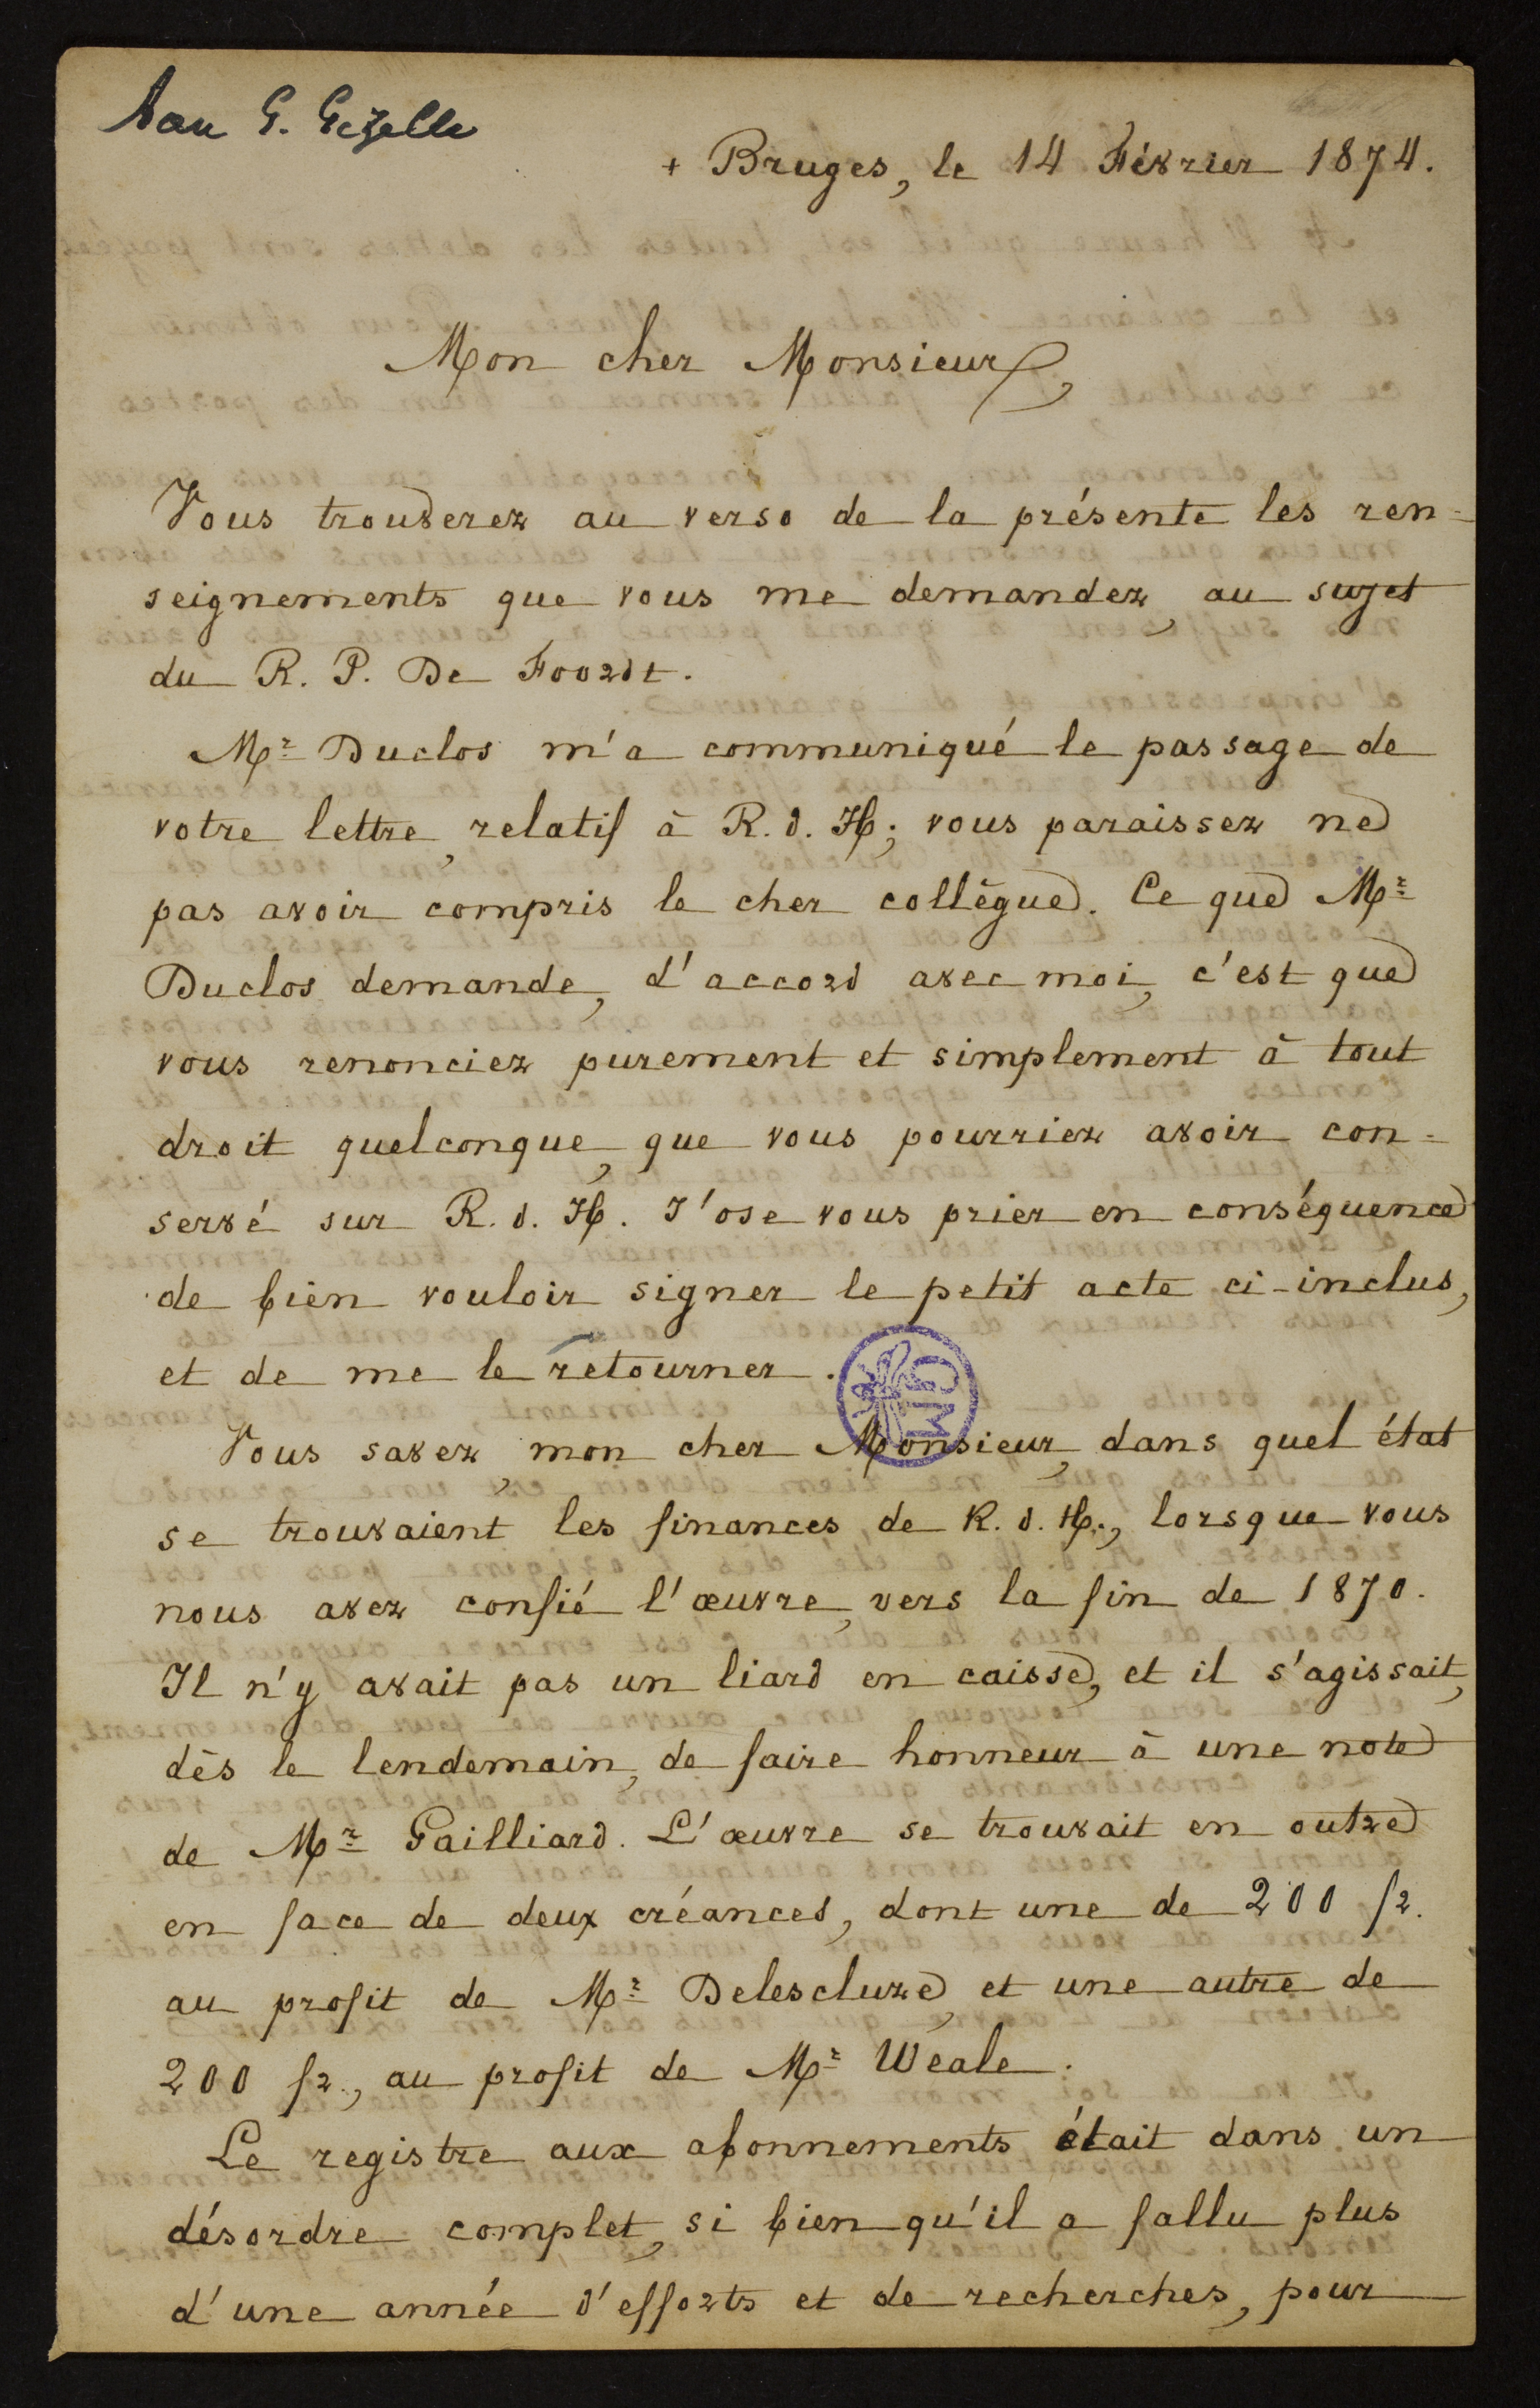 Aan G. Gezelle
+ Bruges, le 14 Février 1874.
Mon cher Monsieur,
Vous trouverez au verso de la présente les ren=
seignements que vous me demandez, au sujet
du R. P. De Foordt.
Mr Duclos m'a communiqué le passage de
votre lettre, relatif à R. d. H; vous paraissez ne
pas avoir compris le cher collègue. Ce que Mr
Duclos demande, d'accord avec moi, c'est que
vous renonciez purement et simplement à tout
droit quelconque, que vous pourriez avoir con=
servé sur R. d. H. J'ose vous prier en conséquence
de bien vouloir signer le petit acte ci-inclus,
et de me le retourner.
GM
Vous savez, mon cher Monsieur, dans quel état
se trouvaient les finances de R. d. H., lorsque vous
nous avez confié l'œuvre, vers la fin de 1870.
Il n'y avait pas un liard en caisse, et il s'agissait,
dès le lendemain, de faire honneur à une note
de Mr Gailliard. L'œuvre se trouvait en outre
en face de deux créances, dont une de 200 fr.
au profit de Mr Delescluze, et une autre de
200 fr., au profit de Mr Weale.
Le registre aux abonnements était dans un
désordre complet, si bien qu'il a fallu plus
d'une année d'efforts et de recherches, pour